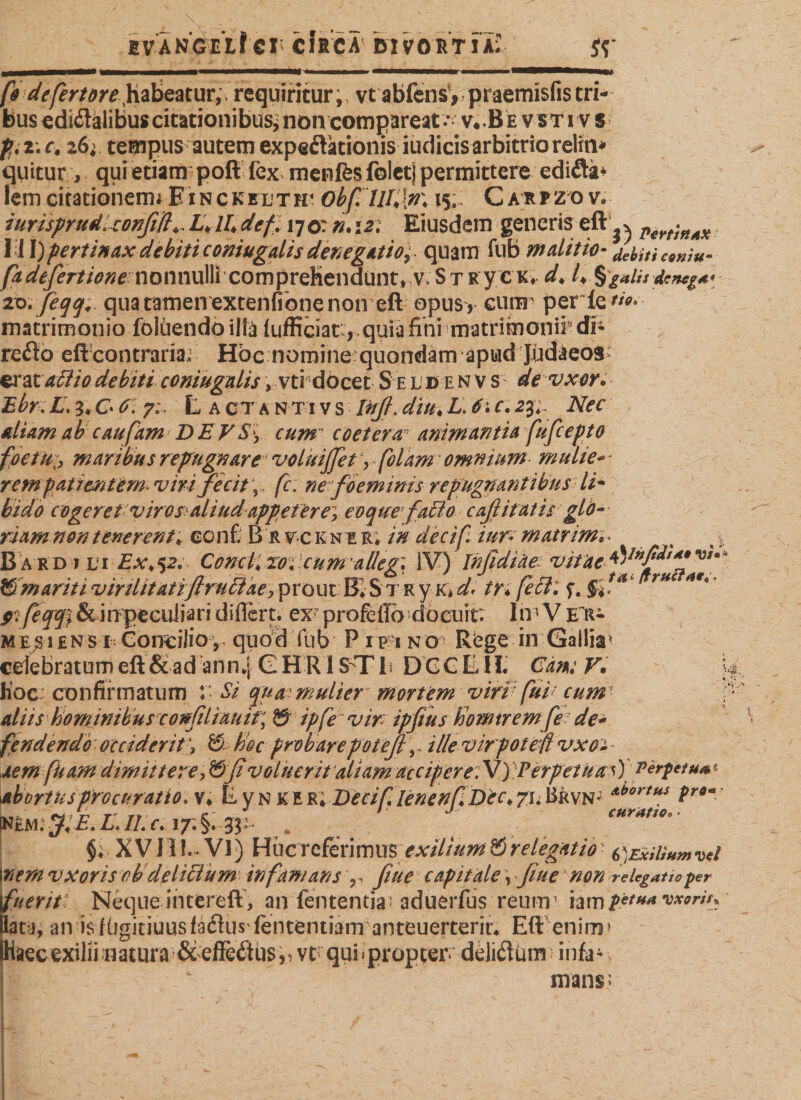 EVANGELICI CIRCA DIVORTIA. 55
fo desertore habeatur, requiritur, vt absens, praemissis tri-
bus edictalibus citationibus, non compareat. v. BEVSTIVS
p. 2. c. 26. tempus autem exspectationis iudicis arbitrio relin-
quitur, qui etiam post sex menses solet permittere edicta-
lem citationem. FINCKELTH. Obs. III. n. 15. CARPZOV.
iurisprud. consist. L. II. def. 170. n. 12. Eiusdem generis est
III) pertinax debiti coniugalis denegatio, quam sub malitio-
sa desertione nonnulli comprehendunt, v. STRYCK. d. l. §.
20. seqq. qua tamen extensione non est opus, cum per se
matrimonio soluendo illa sufficiat, quia fini matrimonii di-
recto est contraria. Hoc nomine quondam apud Judaeos
erat actio debiti coniugalis, vti docet SELDENVS de vxor.
Ebr. L. 3. C. 6. 7. LACTANTIVS Inst. diu. L. 6. c. 23. Nec
aliam ab causam DEVS, cum coetera animantia suscepto
foetu, maribus repugnare voluisset, solam omnium mulie-
rem patientem viri fecit, sc. ne foeminis repugnantibus li-
bido cogeret viros aliud appetere, eoque facto castitatis glo-
riam non tenerent. conf. BRVCKNER. in decis. iur. matrim.
BARDILI Ex. 52. Concl. 20. cum alleg. IV) Insidiae vitae
& mariti virilitati structae, prout B. STRYK. d. tr. sect. 5. §.
9. seqq. & in peculiari dissert. ex professo docuit. In VER-
MESIENSI Concilio, quod sub PIPINO Rege in Gallia
celebratum est & ad ann. CHRISTI DCCLII. Can. V.
hoc confirmatum: Si qua mulier mortem viri sui cum
aliis hominibus consiliauit, & ipse vir ipsius homirem se de-
fendendo occiderit, & hoc probare potest, ille vir potest vxo-
rem suam dimittere, & si voluerit aliam accipere. V) Perpetua
abortus procuratio. v. LYNKER. Decis. Ienens. Dec. 71. BRVN-
NEM. J. E. L. II. c. 17. §. 33.
§. XVIII. VI) Huc referimus exilium & relegatio-
nem vxoris ob delictum infamans, siue capitale, siue non
fuerit. Neque interest, an sententia aduersus reum iam
lata, an is fugitiuus factus sententiam anteuerterit. Est enim
haec exilii natura & effectus, vt qui propter delictum infa-
mans
3) Pertinax
debiti coniu-
galis denega-
tio.
4) Insidiae vi-
tai structae.
5) Perpetua
abortus pro-
curatio.
6) Exilium vel
relegatio per
petua vxoris.